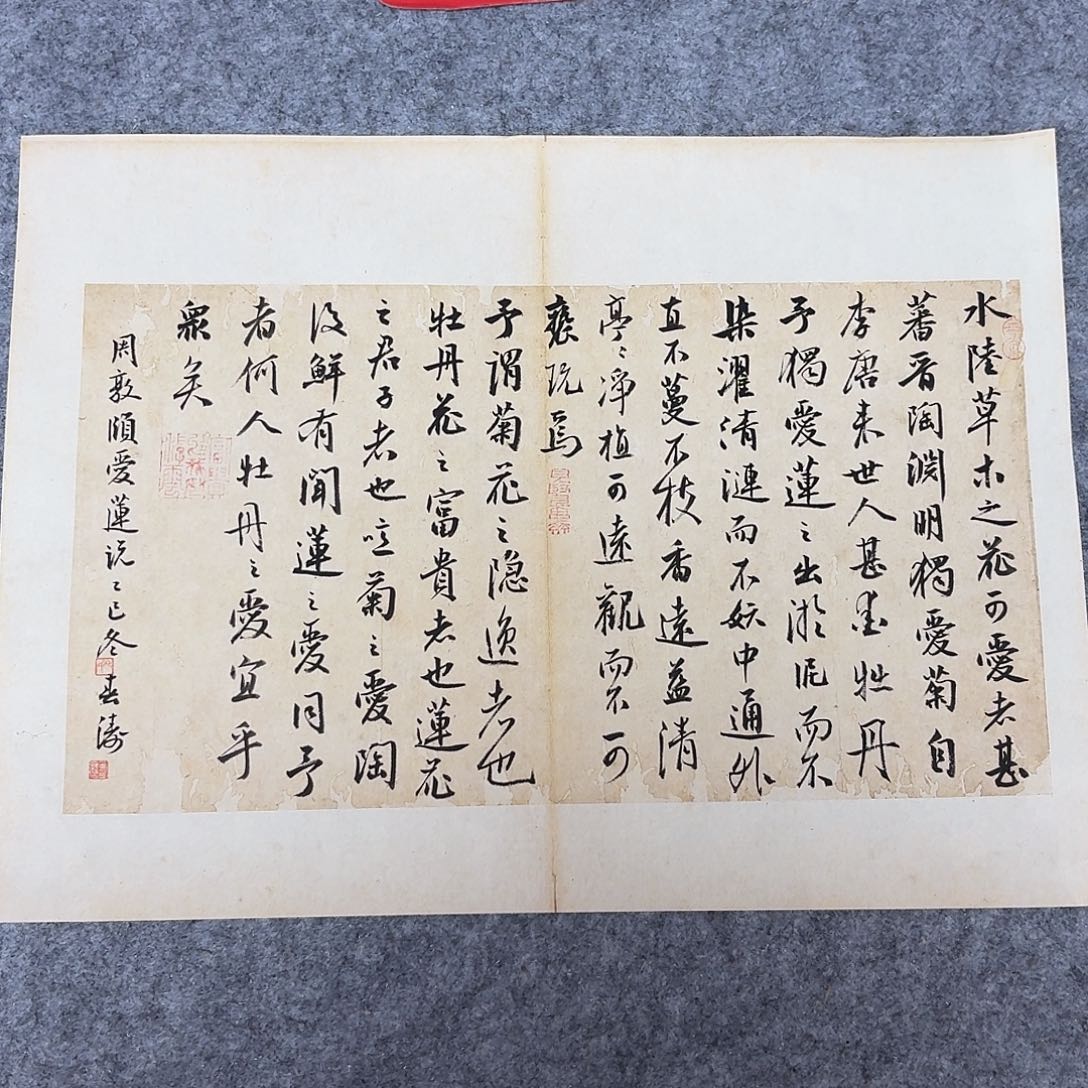 水陸草木之花可愛者甚
蕃晋陶淵明獨愛菊自
李唐来世人甚愛牡丹
予獨愛蓮之出淤泥而不
染濯清漣而不妖中通外
直不蔓不枝香遠益清
亭〻净植可遠觀而不可
褻玩焉
予謂菊花之隐逸者也
牡丹花之富貴者也蓮花
之君子者也噫菊之愛陶
後鮮有聞蓮之愛同予
者何人牡丹之愛宜乎
眾矣
周敦頤愛蓮説乙巳冬春濤